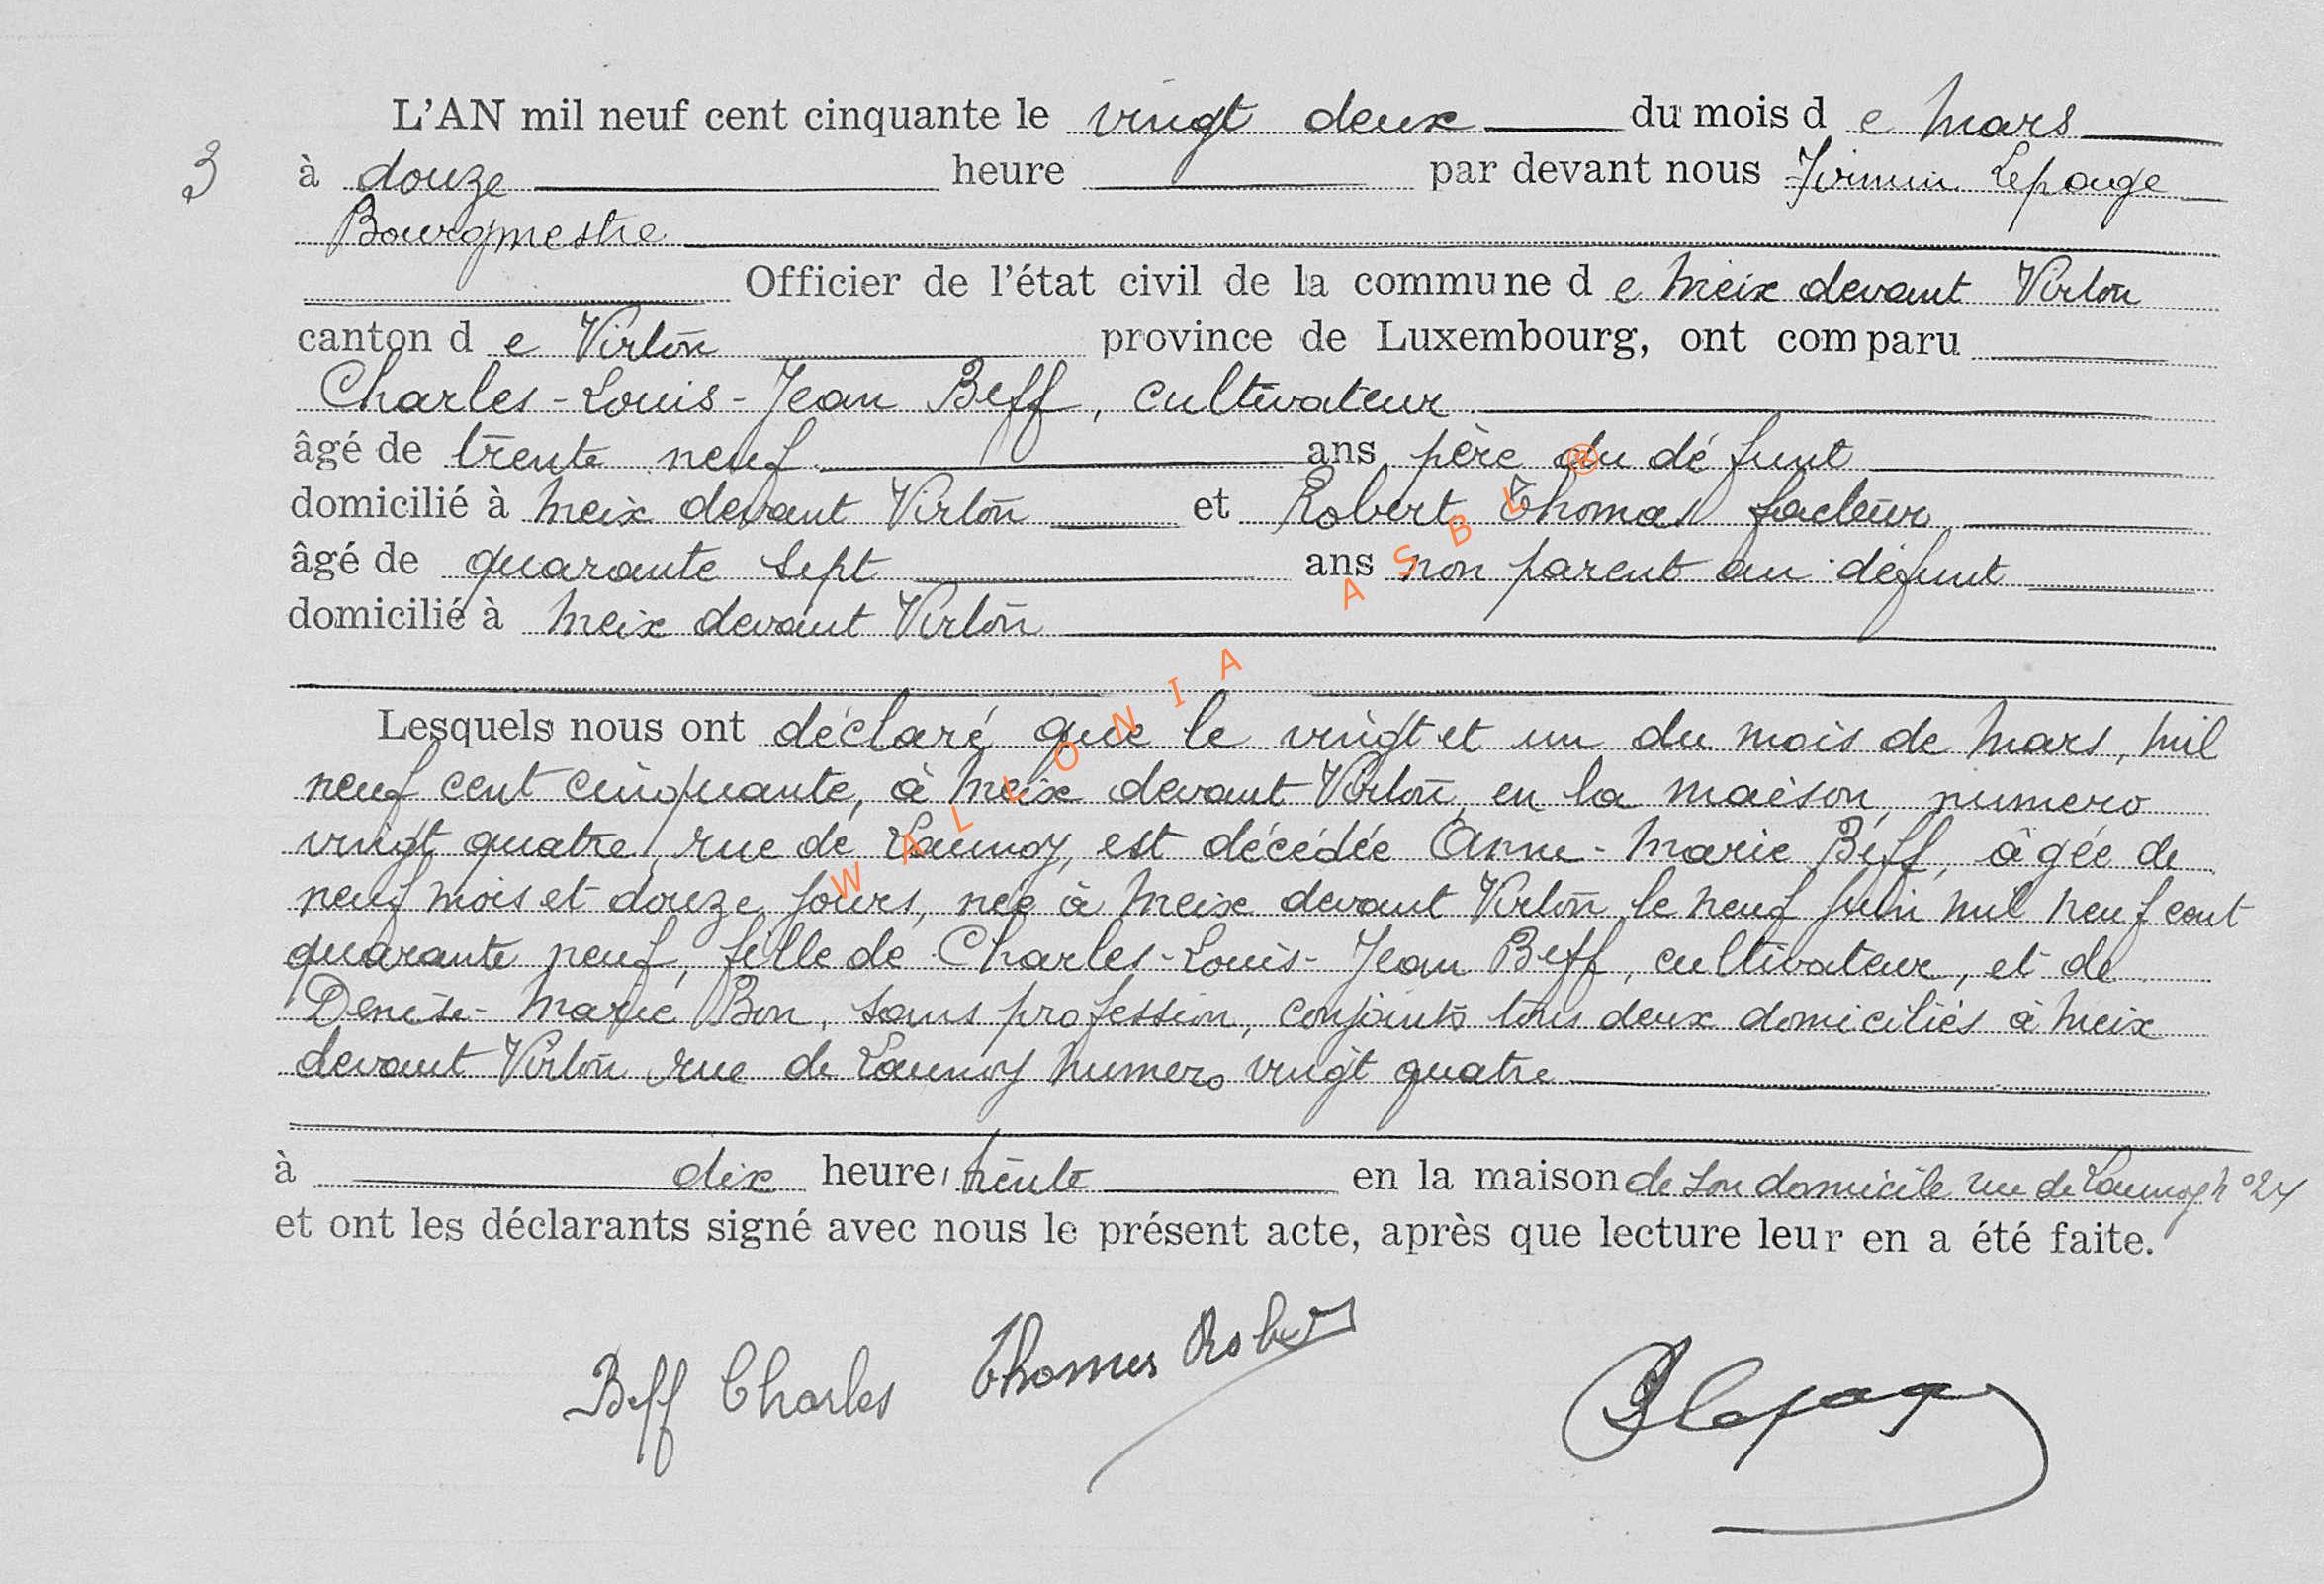 L'AN mil neuf cent cinquante le vingt deux du mois d e Mars
3 à douze heure par devant nous Firmin Lepage
Bourgmestre
Officier de l'état civil de la commune d e Meix devant Virton
canton d e Virton province de Luxembourg, ont comparu
Charles-Louis-Jean Beff, cultivateur
âgé de trente neuf ans père du défunt
domicilié à Meix devant Virton et Robert Thomas facteur
âgé de quarante sept ans non parent au défunt
domicilié à Meix devant Virton
Lesquels nous ont déclaré que le vingt et un du mois de Mars, mil
neuf cent cinquante, à Meix devant Virton, en la maison, numero
vingt quatre, rue de Launoy, est décédée Anne-Marie Beff, âgée de
neuf mois et douze jours, née à Meix devant Virton le neuf juin mil neuf cent
quarante neuf, fille de Charles-Louis-Jean Beff, cultivateur, et de
Denise-Marie Bon, sans profession, conjoints tous deux domiciliés à Meix
devant Virton rue de Launoy numero vingt quatre
à dix heure, trente en la maison de son domicile rue de Launoy n° 24
et ont les déclarants signé avec nous le présent acte, après que lecture leur en a été faite.
Beff Charles Thomas Robert Lepage
WALLONIA ASBL ®